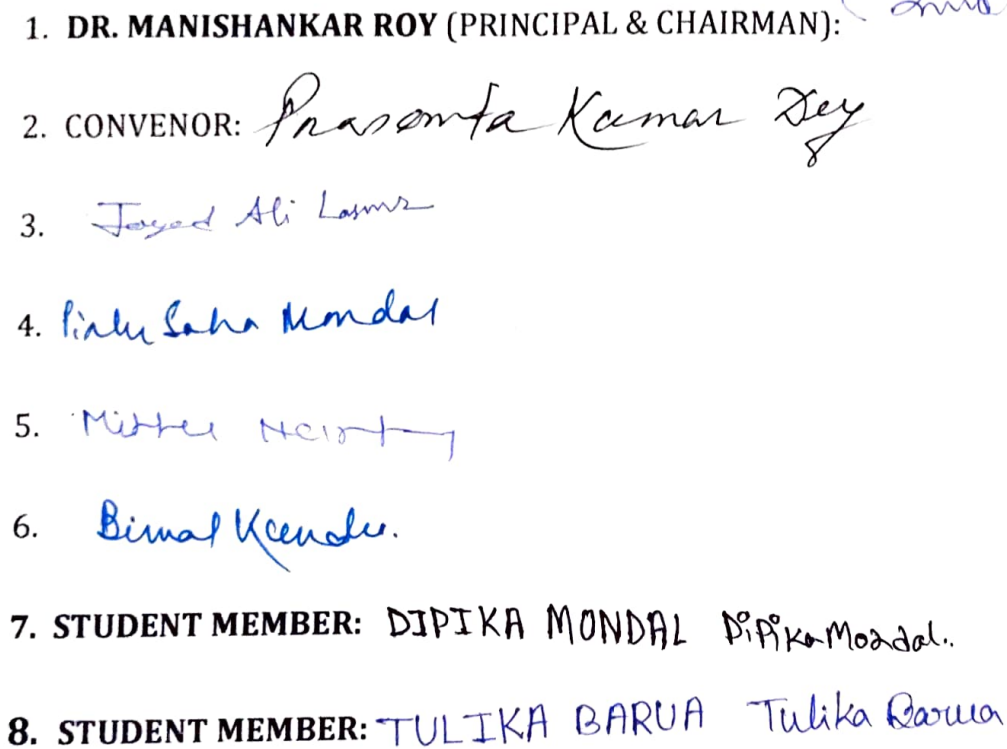 1. DR. MANISHANKAR ROY (PRINCIPAL & CHAIRMAN):
2. CONVENOR: Prasanta Kumar Dey
3. Ali
4. Saha Mondal
5.
6. Bimal Kundu.
7. STUDENT MEMBER: DIPIKA MONDAL Dipika Mondal..
8. STUDENT MEMBER: TULIKA BARUA Tulika Barua